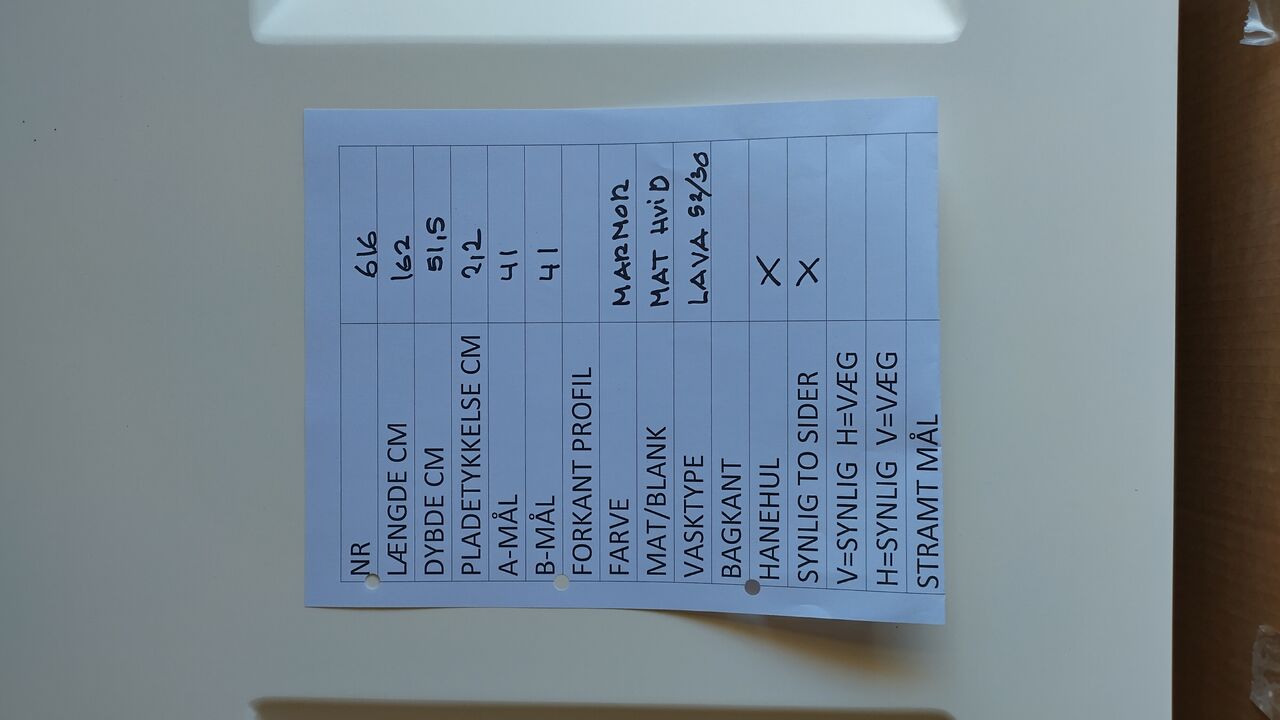 NR 616
LÆNGDE CM 162
DYBDE CM 51,5
PLADETYKKELSE CM 2,2
A-MÅL 41
B-MÅL 41
FORKANT PROFIL
FARVE MARMOR
MAT/BLANK MAT HViD
VASKTYPE LAVA 52/30
BAGKANT
HANEHUL X
SYNLIG TO SIDER X
V=SYNLIG H=VÆG
H=SYNLIG V=VÆG
STRAMT MÅL